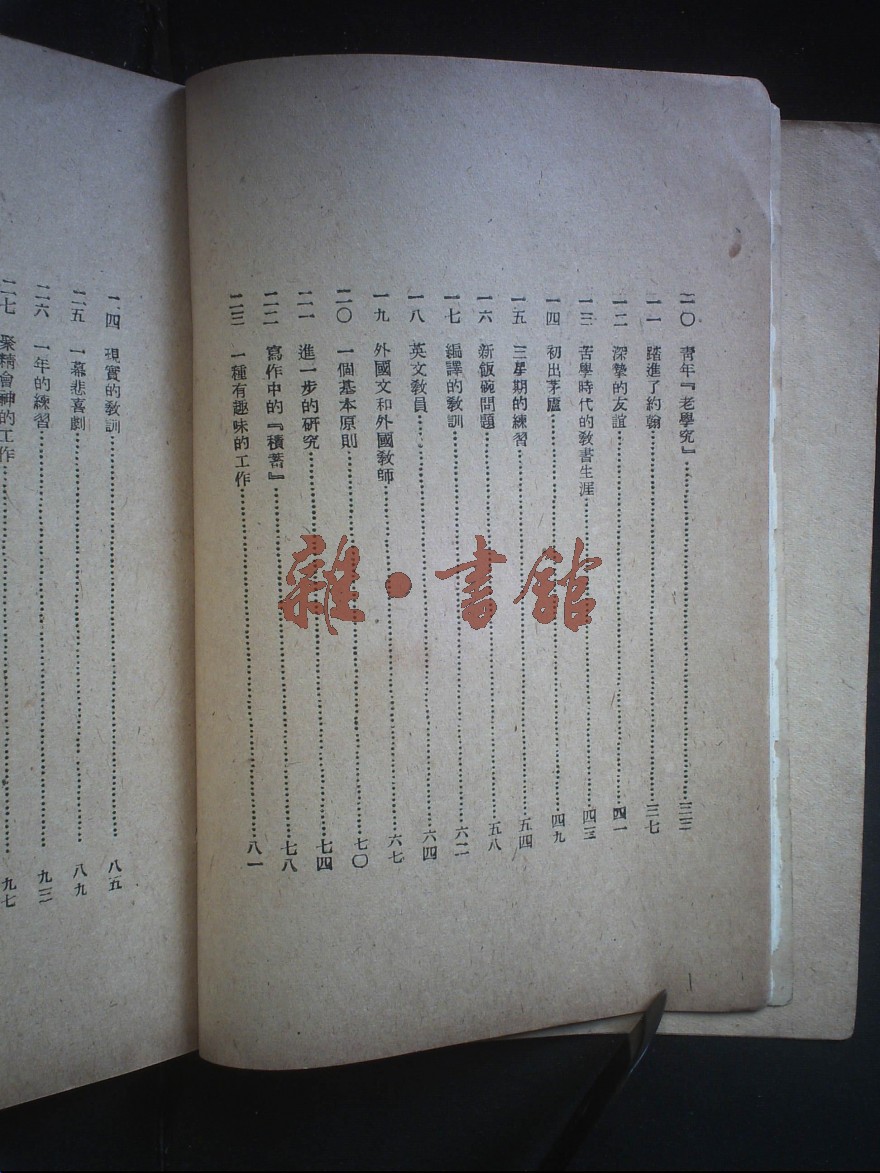 一〇 青年『老學究』 三三
一一 踏進了約翰 三七
一二 深摯的友誼 四一
一三 苦學時代的敎書生涯 四三
一四 初出茅廬 四九
一五 三星期的練習 五四
一六 新飯碗問題 五八
一七 編譯的敎訓 六二
一八 英文敎員 六四
一九 外國文和外國敎師 六七
二〇 一個基本原則 七〇
二一 進一步的研究 七四
二二 寫作中的『積蓄』 七八
二三 一種有趣味的工作 八一
二四 現實的敎訓 八五
二五 一幕悲喜劇 八九
二六 一年的練習 九三
二七 聚精會神的工作 九七
雜·書館